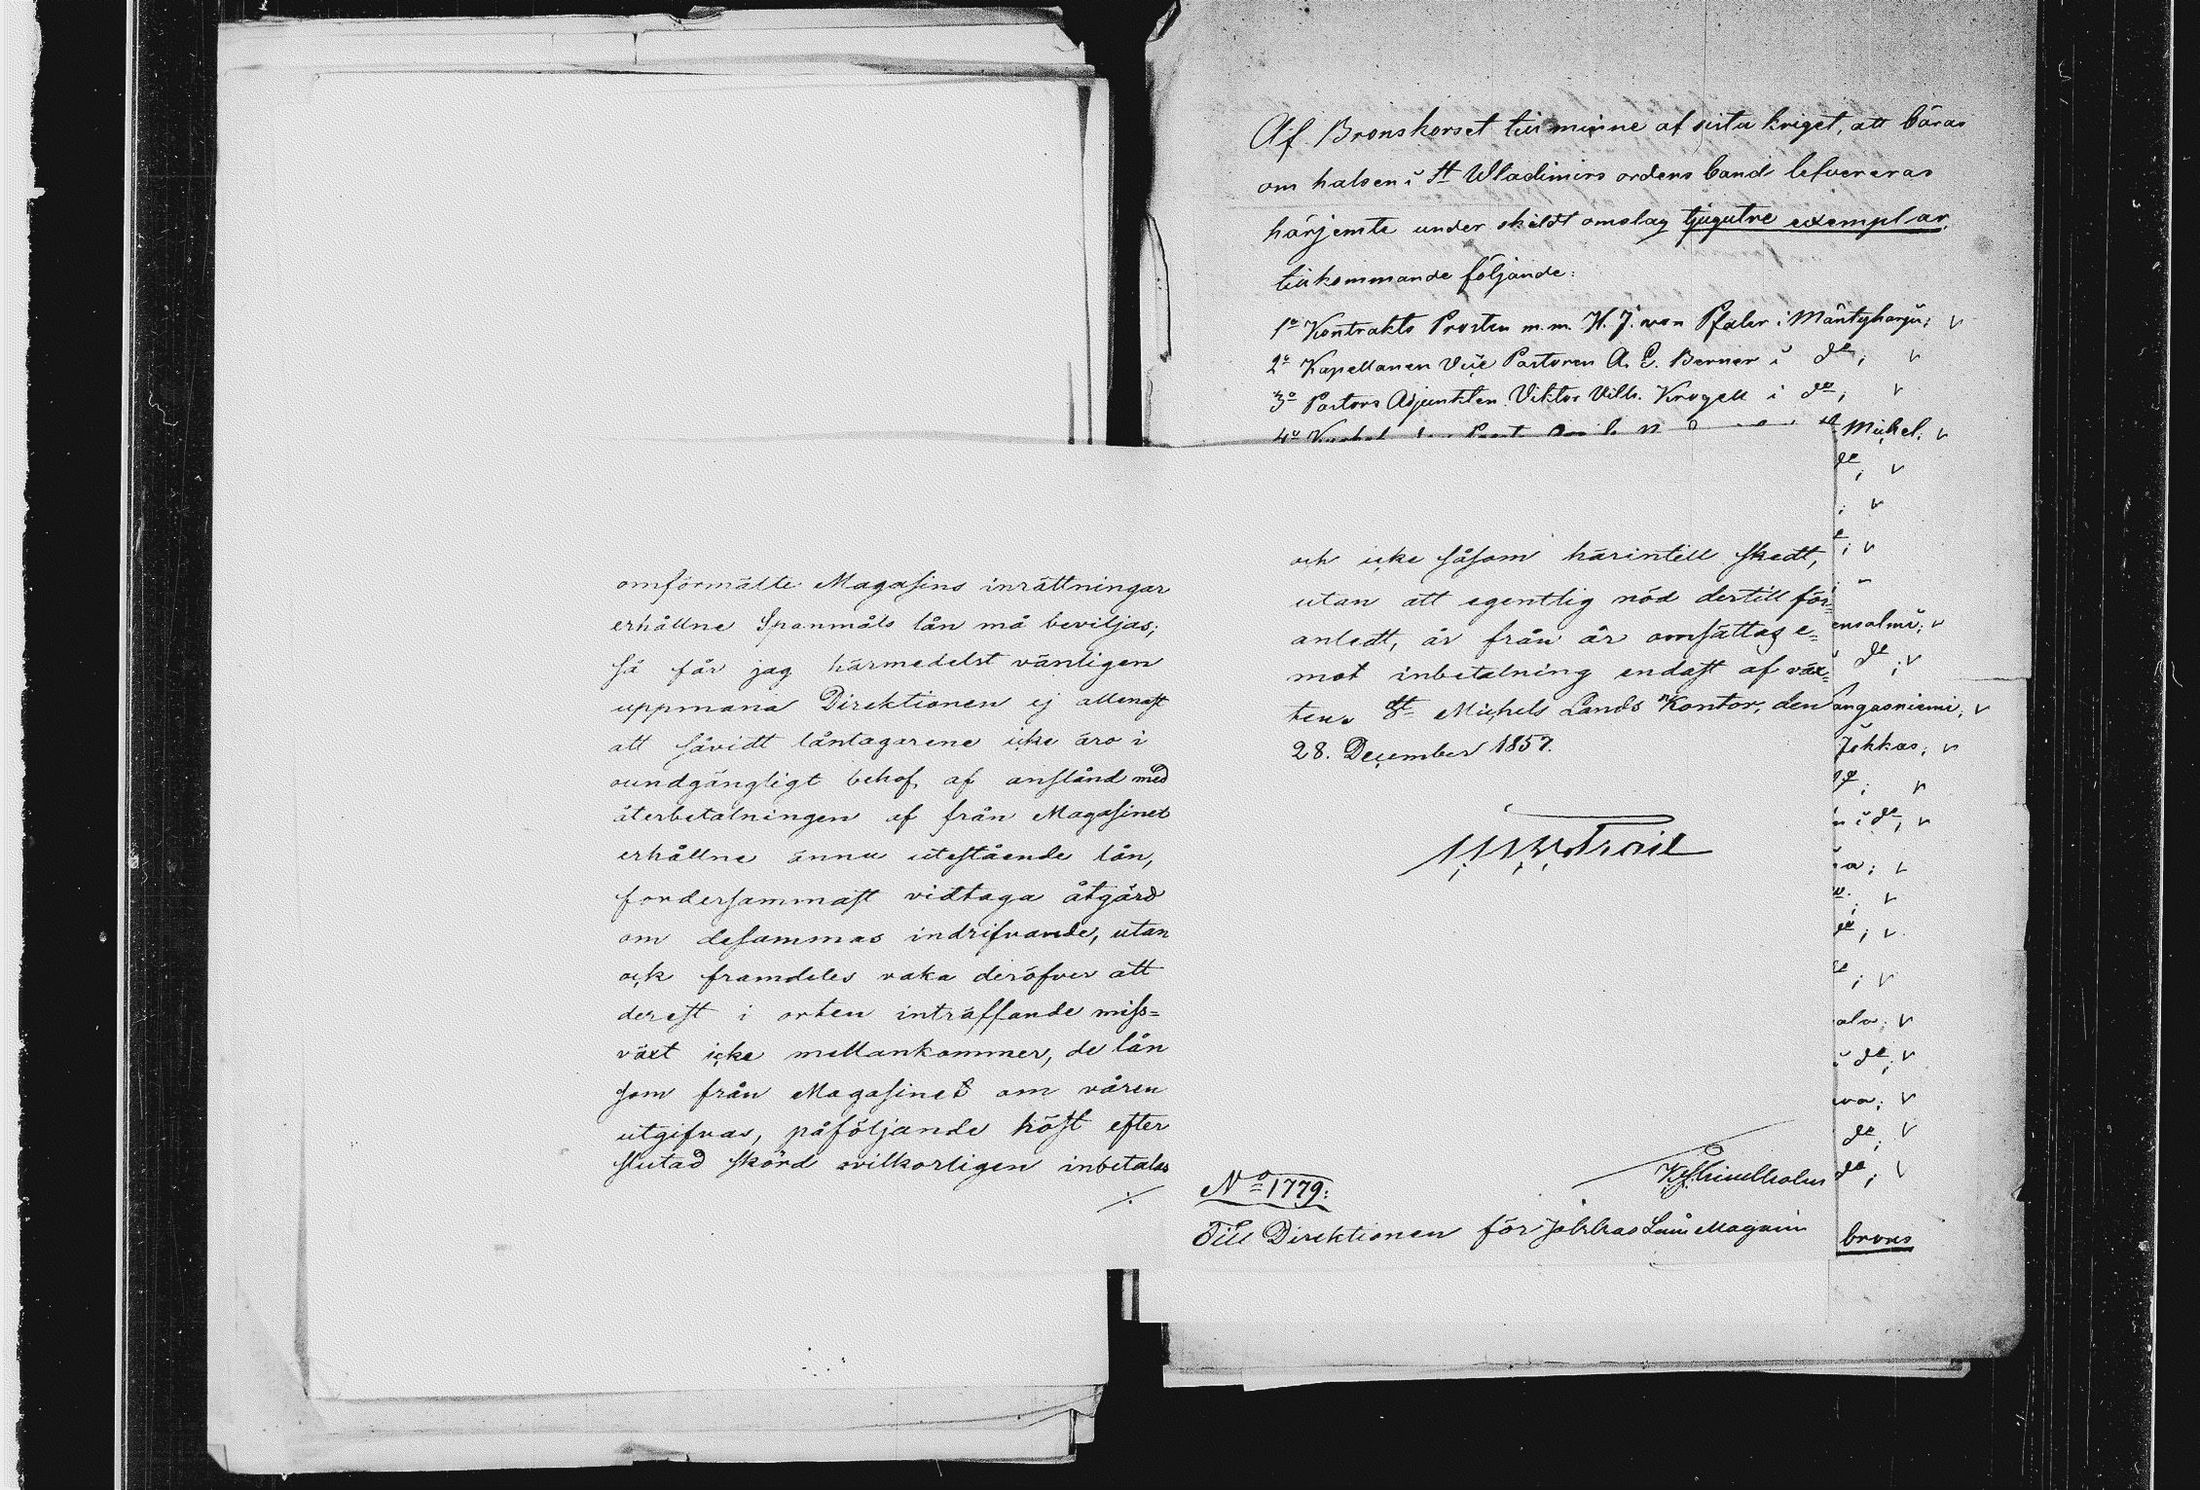 Af Bronskorset till minne af sista kriget, att bäras
om halsen i St Wladimirs ordens band lefvereras
härjemte under skildt omslag tjugutre exemplar,
tillkommande följande:
1o Kontrakts Prosten m.m. H. J. von Pfaler i Mäntyharju; v
2o Kapellanen Vice Pastoren A. E. Berner i do; v
3o Pastors Adjunkten Viktor Vilh. Krogell i do; v
4o St Michel; v
do; v
; v
t; v
ensalmi; v
do; v
angasniemi; v
Jokkas; v
do; v
n i do; v
a; v
v
do; v
; v
ala; v
i do; v
va; v
do; v
do; v
brons
omförmälte Magasins inrättningar
erhållne Spanmåls lån må beviljas;
så får jag härmedelst vänligen
uppmana Direktionen ej allenast
att såvidt låntagarene icke äro i
oundgängligt behof af anstånd med
återbetalningen af från Magasinet
erhållne ännu utestående lån,
fordersammast vidtaga åtgärd
om desammas indrifvande, utan
ock framdeles vaka deröfver att
derest i orten inträffande miss=
växt icke mellankommer, de lån
som från Magasinet om våren
utgifvas, påföljande höst efter
slutad skörd ovilkorligen inbetalas
./.
och icke såsom härintill skedt,
utan att egentlig nöd dertill för=
anledt, år från år omsättas e=
mot inbetalning endast af väx=
ten. St Michels Lands Kontor, den
28. December 1857.
No 1779:
Till Direktionen för Jokkas Låne Magasin